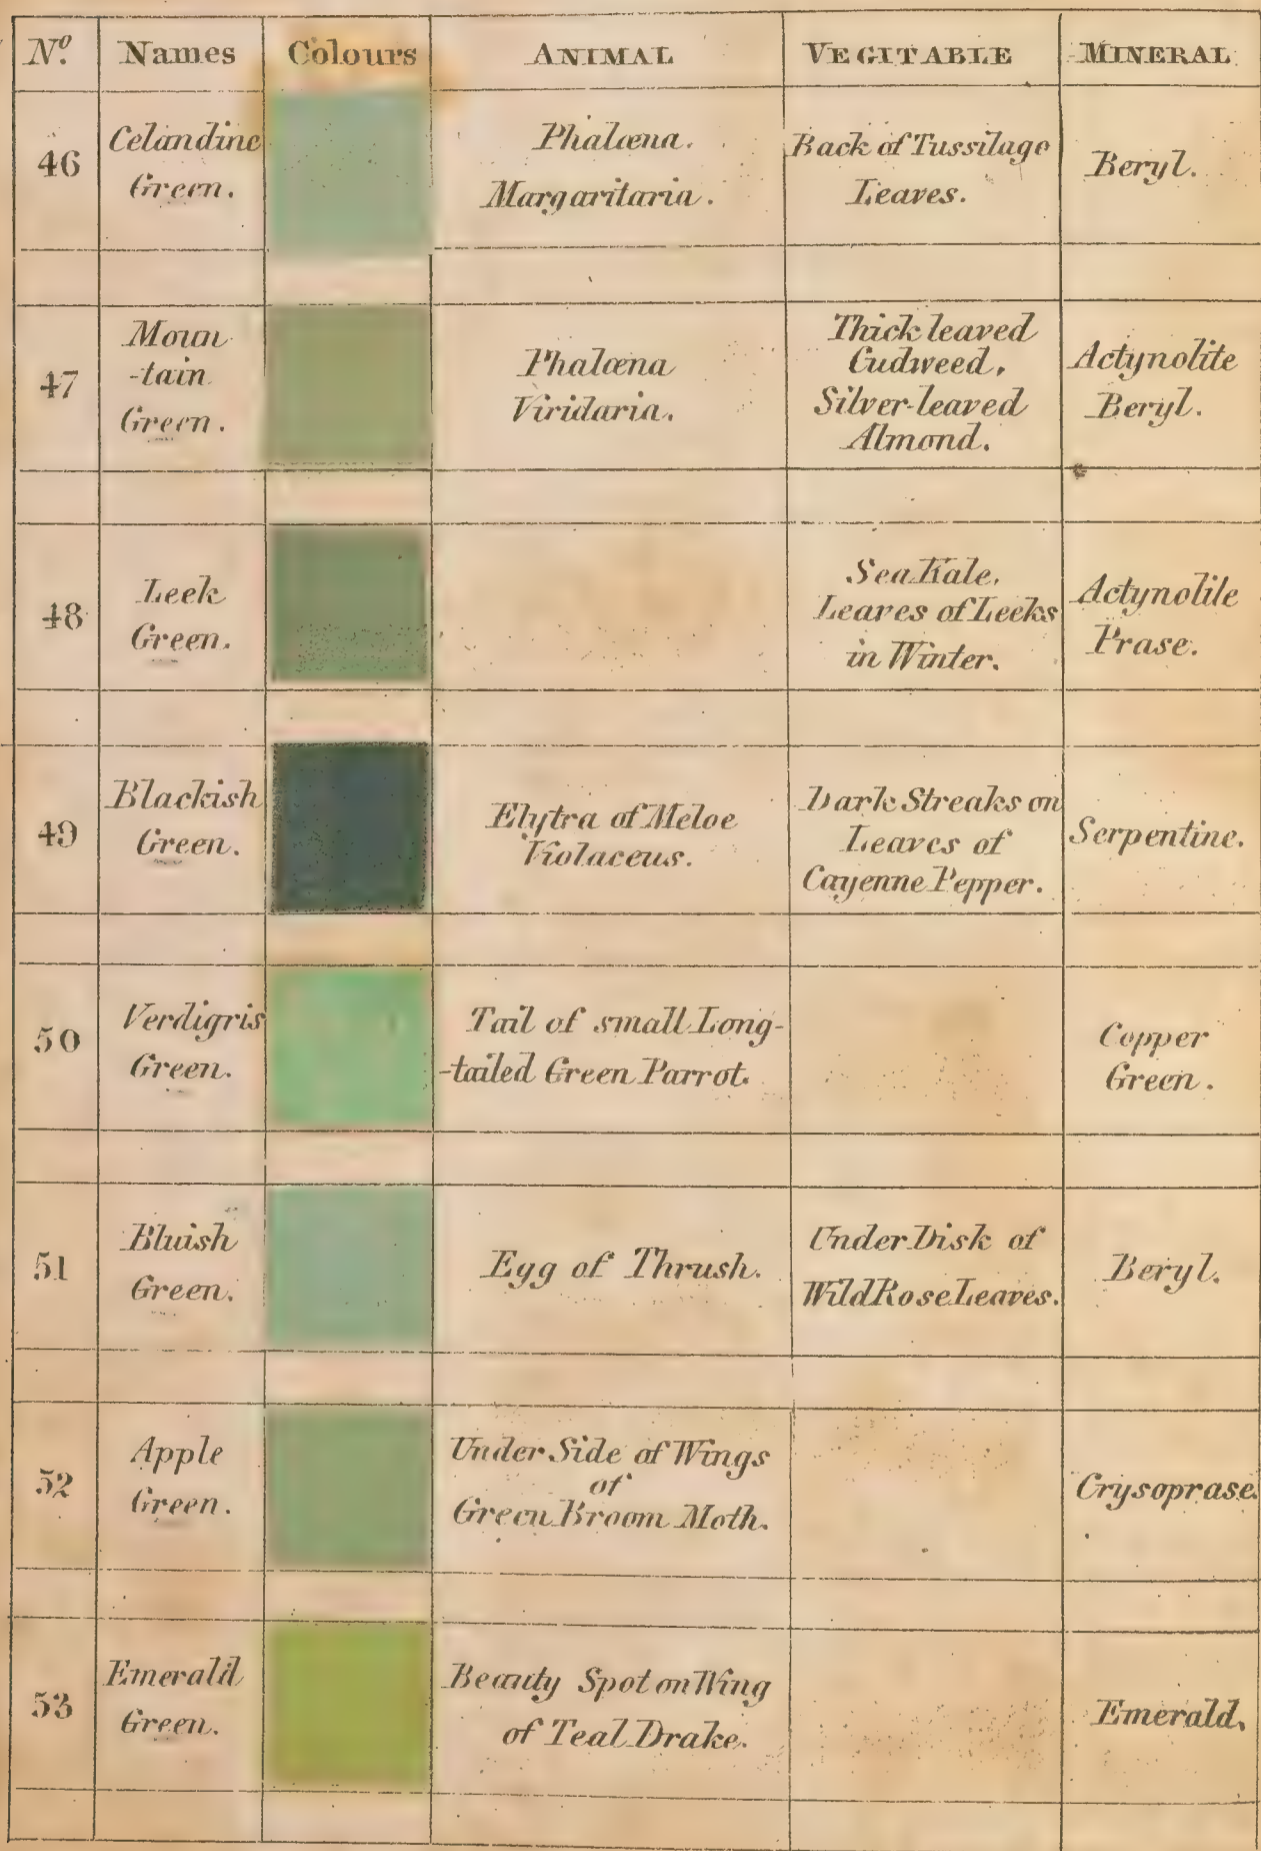 Nº. Names Colours ANIMAL VEGITABLE MINERAL
46
Celandine
Green.
Phalœna.
Margaritaria.
Back of Tussilage
Leaves.
Beryl.
47
Moun
-tain
Green.
Phalœna
Viridaria.
Thick leaved
Cudweed,
Silver-leaved
Almond.
Actynolite
Beryl.
48
Leek
Green.
Sea Kale.
Leaves of Leeks
in Winter.
Actynolite
Prase.
49
Blackish
Green.
Elytra of Meloe
Violaceus.
Dark Streaks on
Leaves of
Cayenne Pepper.
Serpentine.
50
Verdigris
Green.
Tail of small Long-
-tailed Green Parrot.
Copper
Green.
51
Bluish
Green.
Egg of Thrush.
Under Disk of
Wild Rose Leaves.
Beryl.
52
Apple
Green.
Under Side of Wings
of
Green Broom Moth.
Crysoprase.
53
Emerald
Green.
Beauty Spot on Wing
of Teal Drake.
Emerald.